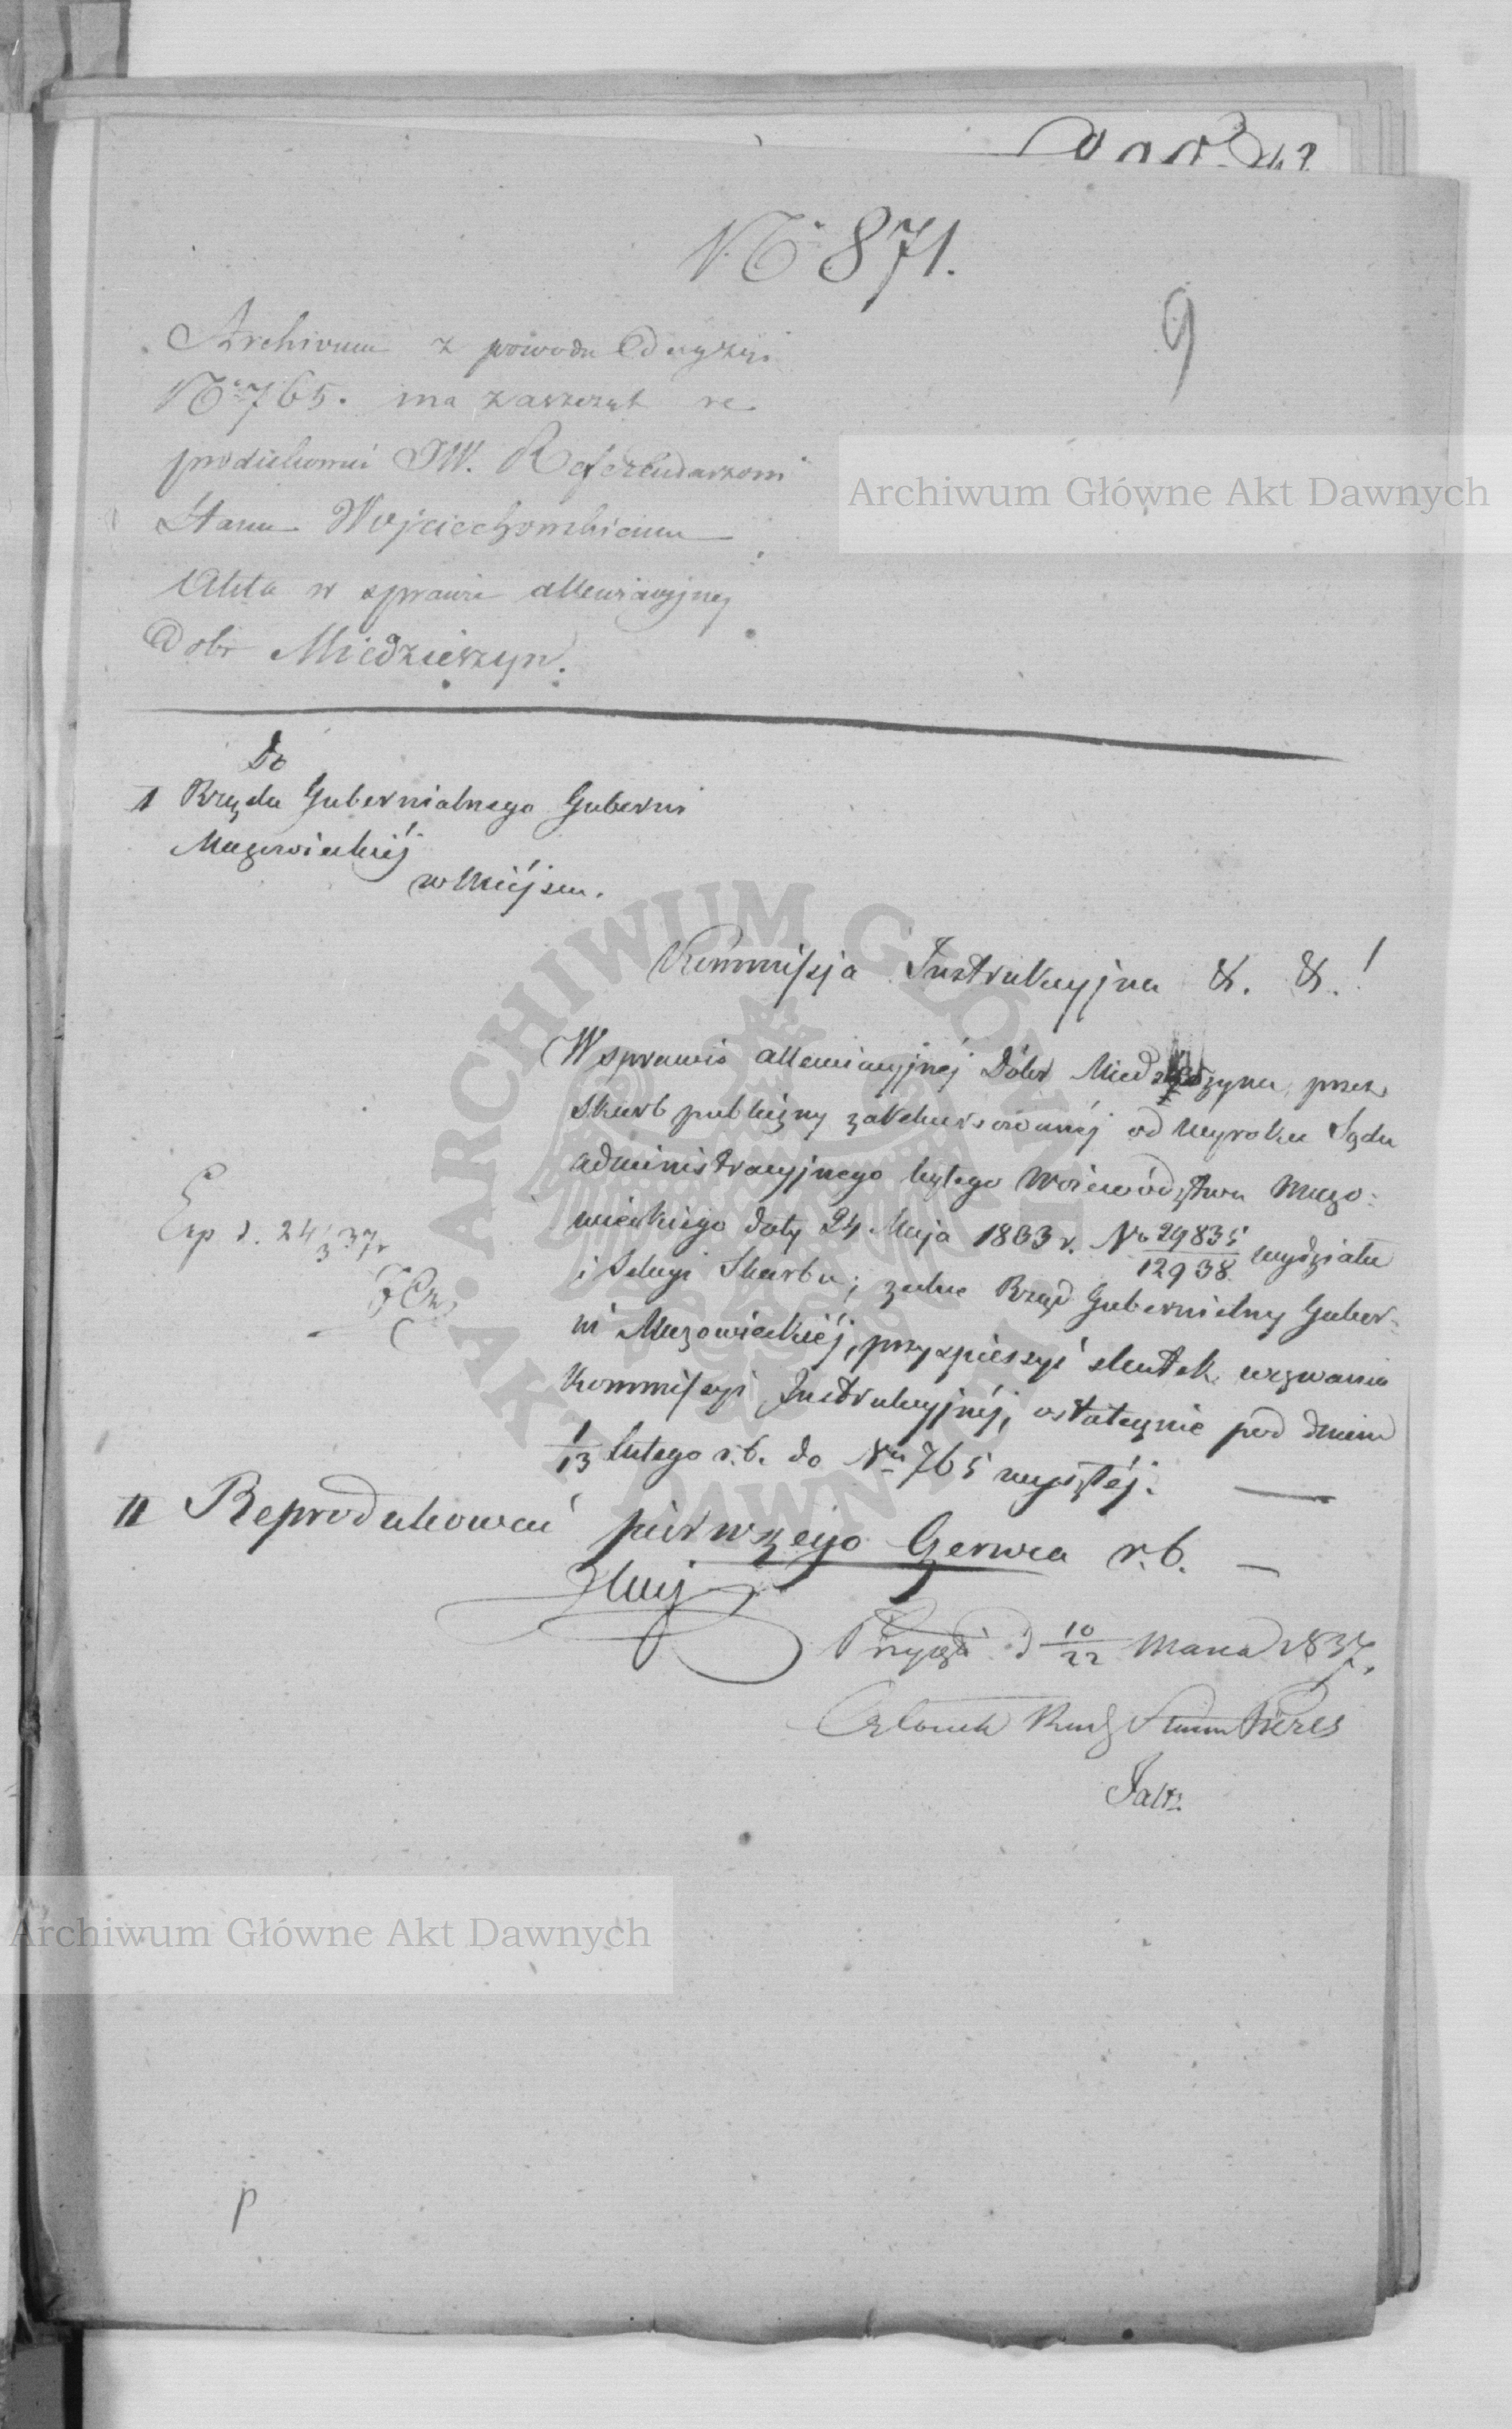 No 871.
9
Archivum z powodu Decyzyi
No 765. ma zaszczyt re
produkować JW. Referendarzowi
Stanu Wojciechowskiemu
Akta w sprawie allewiacyjnej
Dobr Miedzieszyn.
Do
1 Rządu Gubernialnego Gubernii
Mazowieckiéj
w Miéjscu.
Kommissja Instrukcyjna &. &.!
W sprawie allewiacyjnéj Dóbr Miedzeszyna, przez
Skarb publiczny zarekursowanéj od wyroku Sądu
administracyjnego byłego Województwa Mazo:
wieckiego daty 24 Maja 1833 r. No 29835/12938 wydziału
i Sekcyi Skarbu; zechce Rząd Gubernialny Guber:
ni Mazowieckiéj, przyspieszyć skutek wezwania
Kommissyi Instrukcyjnéj, ostatecznie pod dniem
1/13 lutego r.b. do Nru 765 wyszłéj.
Exp d. 24/3 37 r
II Reprodukować pierwszego Czerwca r.b.
d 10/22 Marca 1837.
Członek Rady Stanu
Archiwum Główne Akt Dawnych
ARCHIWUM GŁÓWNE AKT DAWNYCH
Archiwum Główne Akt Dawnych
p